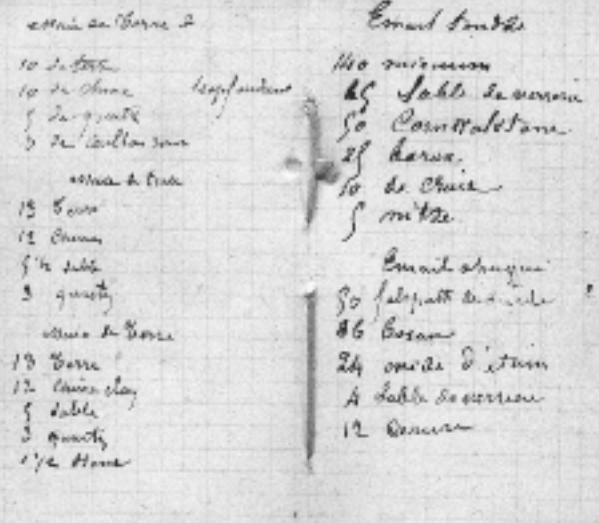 de Terre 2
10 de terre
10 de chine
5 de quartz
3 de
de terre
13 Terre
12 Chine
5 1/2 sable
3 quartz
de Terre
13 Terre
12 Chine clay
5 sable
3 quartz
1 1/2 Stone
Email tendre
140 minium
45 Sable de verrerie
50 Cornwalstone
25 borax
10 de Craie
5 nitre
Email opaque
50 felspath
36 Borax
24 oxide d'etain
4 Sable de verrerie
12